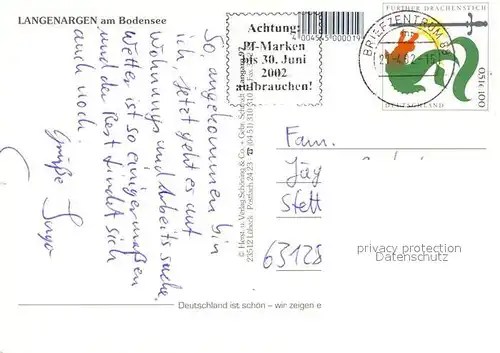 LANGENARGEN am Bodensee
So, angekommen bin
ich, jetzt geht es auf
Wohnungs und Arbeitssuche.
Wetter ist so einigermaßen
und der Rest findet sich
auch noch.
Grüße Sonya
Achtung:
Pf-Marken
bis 30. Juni
2002
aufbrauchen!
4 004545 000019
FURTHER DRACHENSTICH
BRIEFZENTRUM
DEUTSCHLAND
0,51€ 100
© Horst u. Verlag Schöning & Co. + Gebr. Schmidt
23512 Lübeck · Postfach 24 23 · ☎ (04 51) 310 310
Fam.
Jäg
Stett
63128
privacy protection
Datenschutz
Deutschland ist schön – wir zeigen e